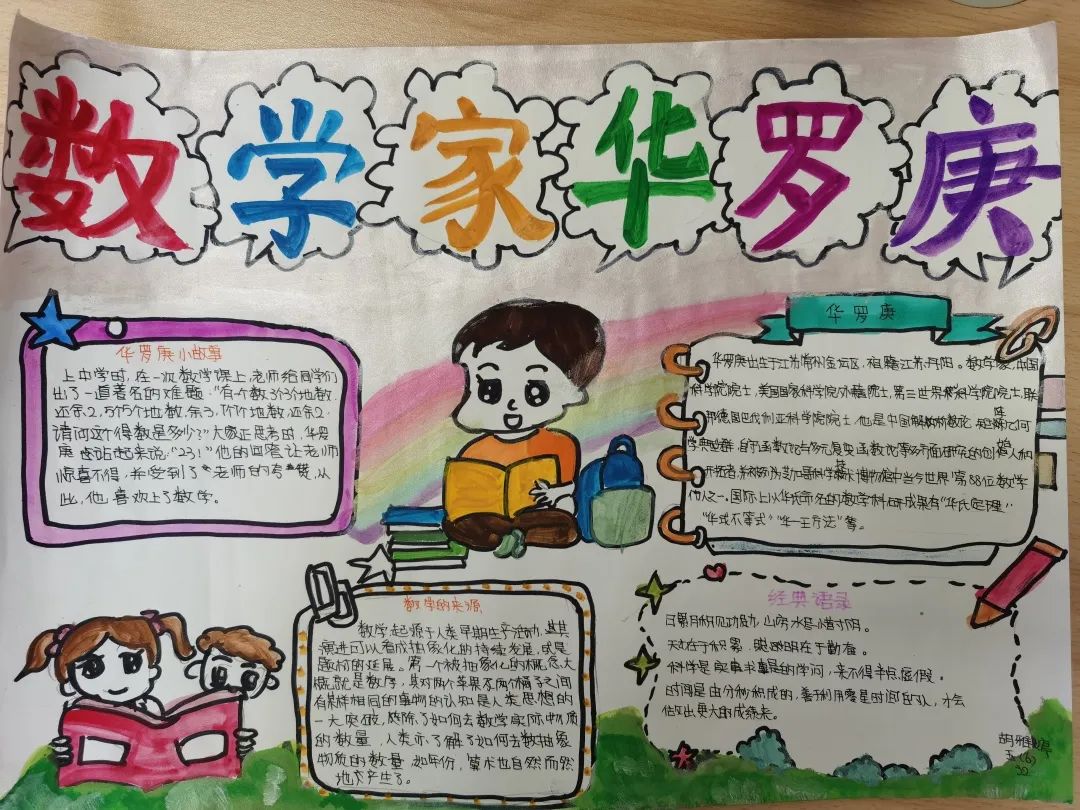 数学家华罗庚
华罗庚小故事
上中学时,在一次数学课上,老师给同学们
出了一道著名的难题:"有一个数,3个3个地数,
还余2,5个5个地数,余3,7个7个地数,还余2,
请问这个得数是多少?"大家正思考时,华罗
庚站起来说:"23!"他的回答让老师
惊喜不得,并受到了老师的夸赞,从
此,他喜欢上了数学。
华罗庚
华罗庚出生于江苏常州金坛区,祖籍江苏丹阳。数学家,中国
科学院院士,美国国家科学院外籍院士,第三世界科学院院士,联
邦德国巴伐利亚科学院院士,他是中国解析数论、矩阵几何
学典型群、自守函数论与多元复变函数论等多方面研究的创始人和
开拓者,并被列为芝加哥科学技术博物馆中当今世界"第88位数学
伟人之一。国际上以华氏命名的数学科研成果有"华氏定理"
"华式不等式""华一王方法"等。
数学的来源
数学,起源于人类早期生产活动,其
演进可以看成抽象化的持续发展,或是
题材的延展。第一个被抽象化的概念大
概就是数字,其对两个苹果及两个橘子之间
有某样相同的事物的认知是人类思想的
一大突破,除了如何去数学实际物质
的数量,人类亦了解了如何去数抽象
物质的数量,如年份,算术也自然而然
地产生了。
经典语录
日累月积见功勋,山穷水尽惜寸阴。
天才在于积累,聪明在于勤奋。
科学是实事求是的学问,来不得半点虚假。
时间是由分秒积成的,善利用零星时间的人,才会
做出更大的成绩来。
胡雅婷
五(6)
32